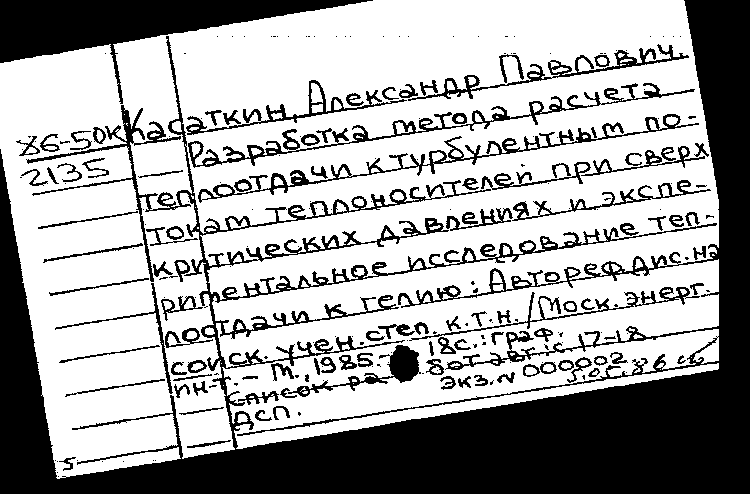 86-50к Касаткин, Александр Павлович.
2135 Разработка метода расчета
теплоотдачи к турбулентным по-
токам теплоносителей при сверх
критических давлениях и экспе-
риментальное исследование теп-
лоотдачи к гелию: Автореф. дис. на
соиск. учен. степ. к.т.н. / Моск. энерг.
ин-т. - М., 1985. - 18с.: граф.
список ра бот авт.: с 17-18.
ДСП. Экз. N 000002.
5